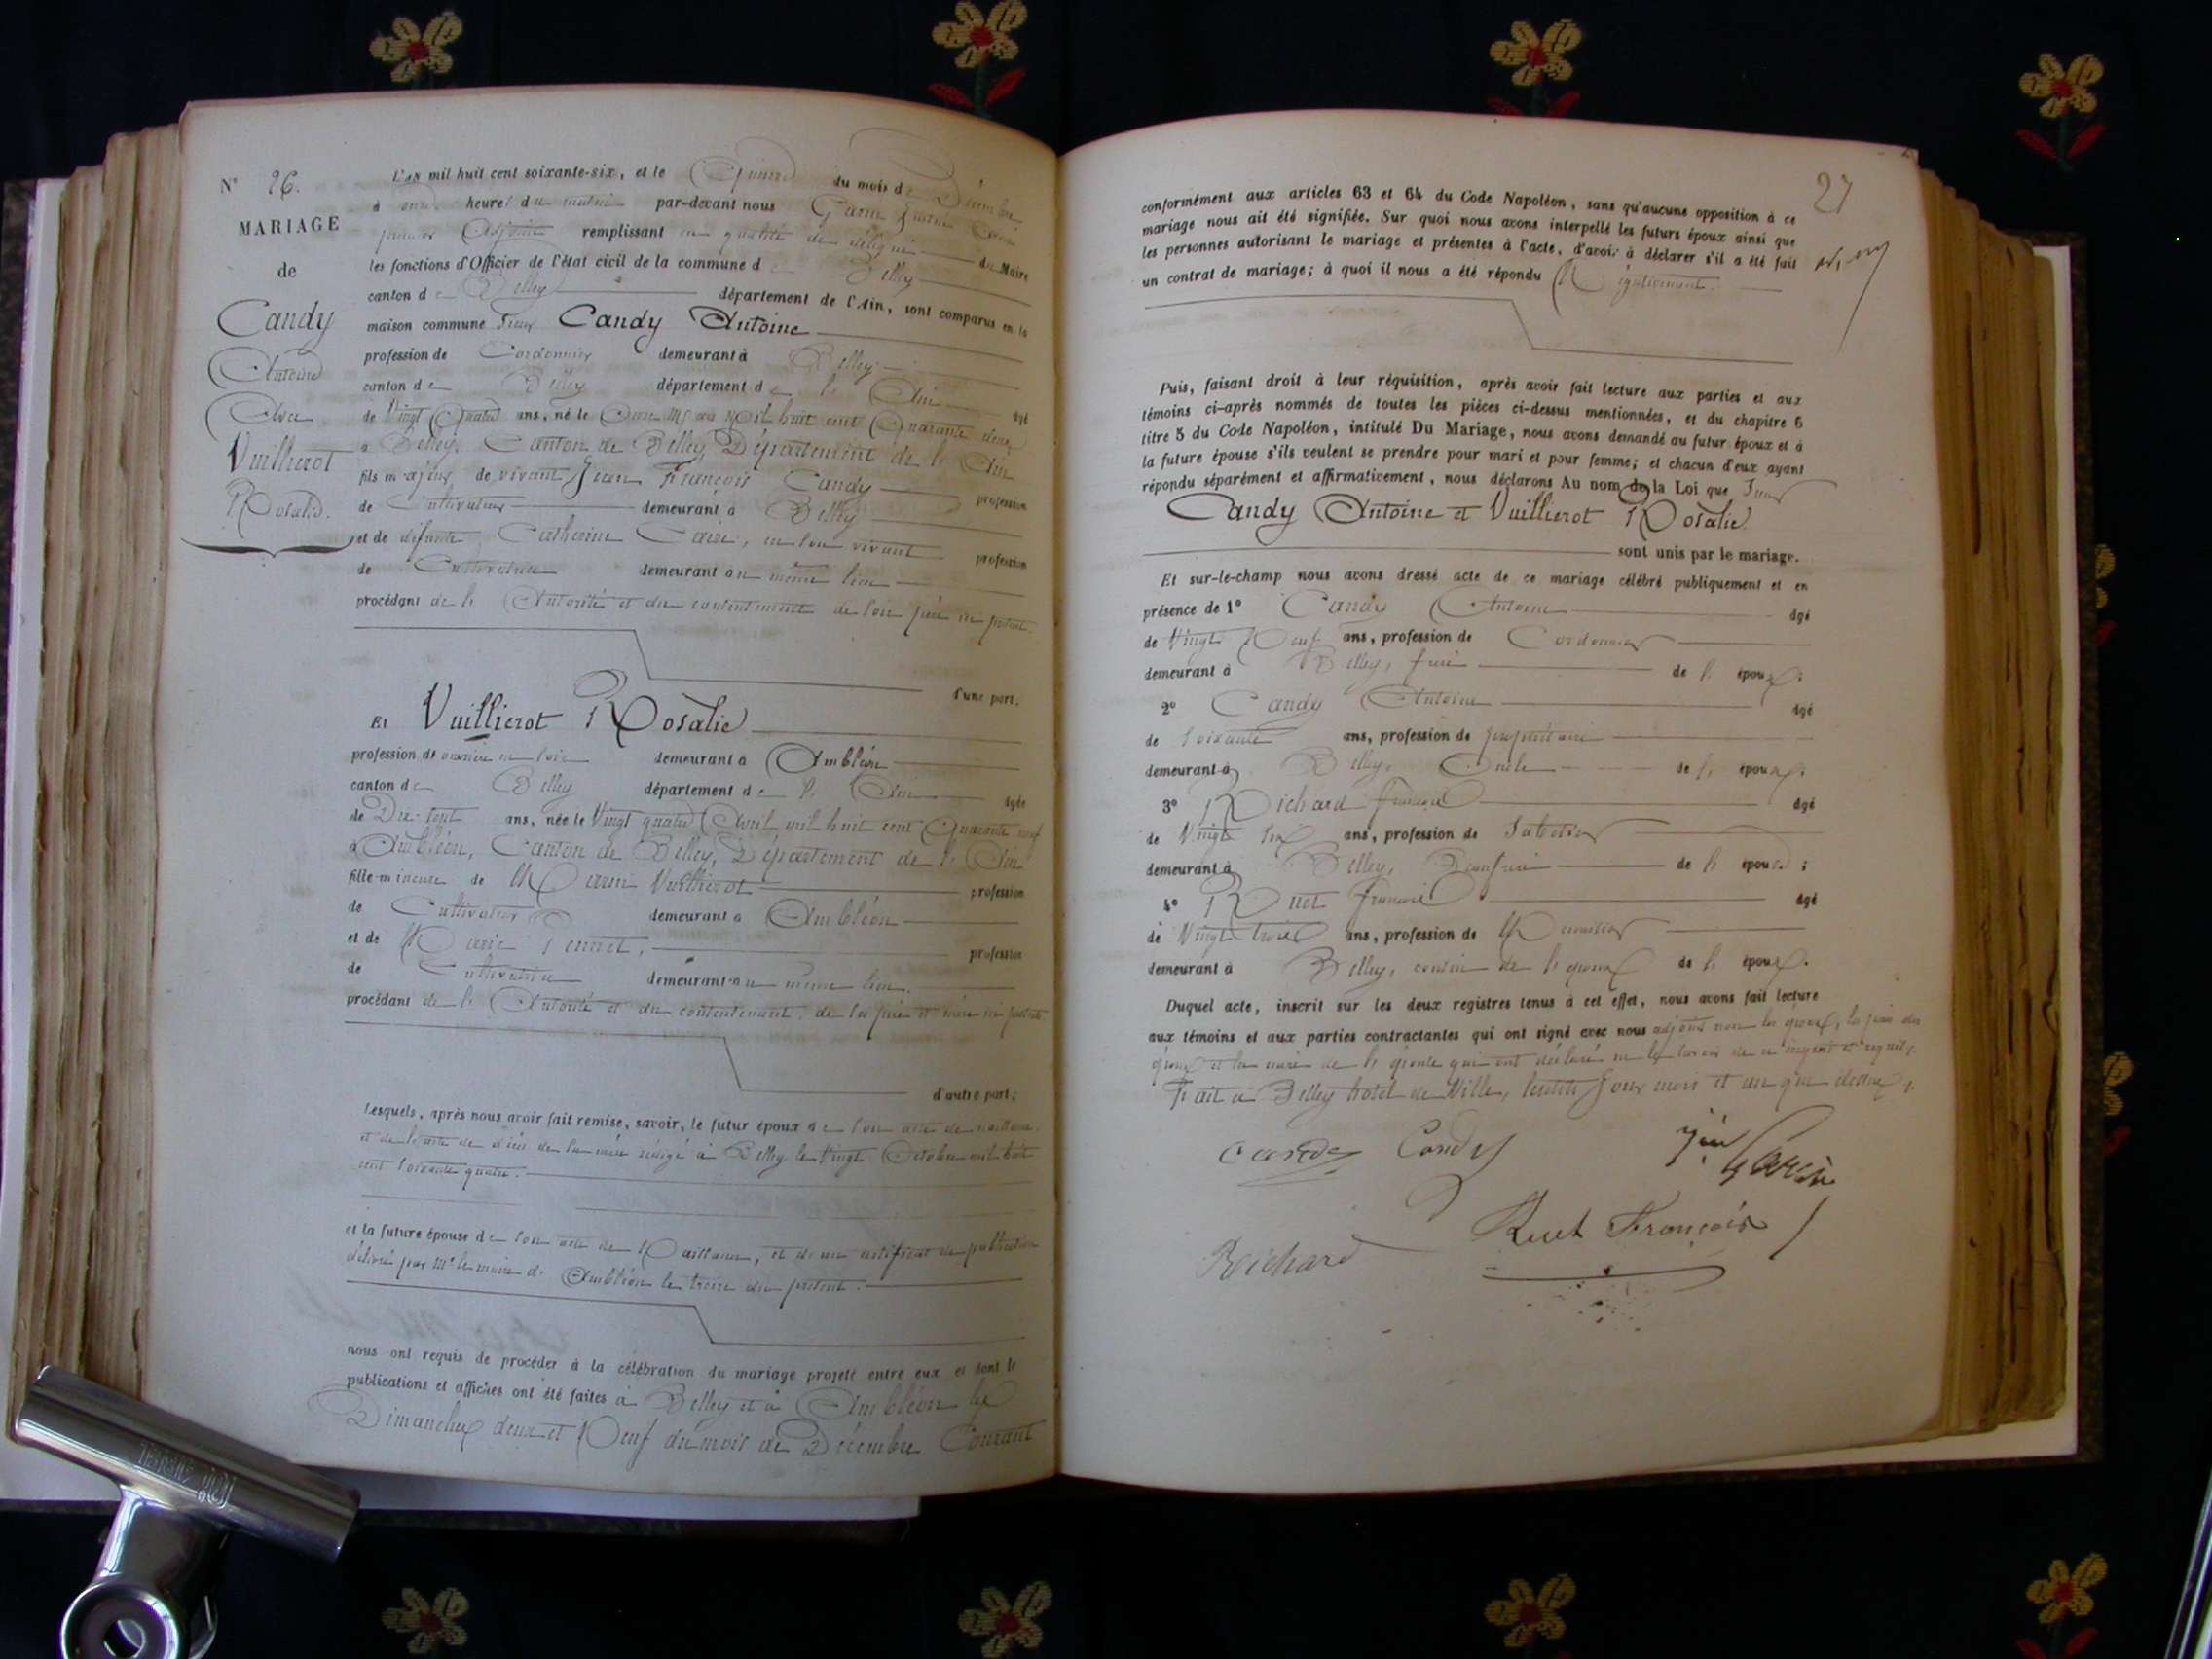 N° 26.
MARIAGE
de
Candy
Antoine
Avec
Vuillierot
Rosalie.
L'AN mil huit cent soixante-six, et le Quinze du mois de Décembre
à onze heures du matin par-devant nous Garin
premier Adjoint remplissant en qualité de délégué du Maire
les fonctions d'Officier de l'état civil de la commune de Belley
canton de Belley département de l'Ain, sont comparus en la
maison commune Sieur Candy Antoine
profession de Cordonnier demeurant à Belley
canton de Belley département de l'Ain âgé
de Vingt Quatre ans, né le Onze Mars Mil huit cent Quarante deux
à Belley, Canton de Belley Département de l'Ain
fils majeur de vivant Jean François Candy profession
de Cultivateur demeurant à Belley
et de défunte Catherine en son vivant profession
de Cultivatrice demeurant au même lieu
procédant de l'Autorité et du consentement de son père ici présent
d'une part;
Et Vuillierot Rosalie
profession de ouvrière en soie demeurant à Ambléon
canton de Belley département de l'Ain âgée
de Dix-sept ans, née le Vingt quatre Avril mil huit cent Quarante neuf
à Ambléon, Canton de Belley, Département de l'Ain
fille mineure de Vuillierot profession
de Cultivateur demeurant à Ambléon
et de Marie profession
de Cultivatrice demeurant au même lieu.
procédant de l'Autorité et du consentement de ses père et mère ici présents
d'autre part;
Lesquels, après nous avoir fait remise, savoir, le futur époux de son acte de naissance
et de l'acte de décès de sa mère rédigé à Belley le Vingt Octobre mil huit
cent soixante quatre.
et la future épouse de son acte de Naissance, et d'un certificat de publication
délivré par Mr le maire d'Ambléon le treize du présent.
nous ont requis de procéder à la célébration du mariage projeté entre eux et dont les
publications et affiches ont été faites à Belley et à Ambléon les
Dimanches deux et Neuf du mois de Décembre Courant
27
conformément aux articles 63 et 64 du Code Napoléon, sans qu'aucune opposition à ce
mariage nous ait été signifiée. Sur quoi nous avons interpellé les futurs époux ainsi que
les personnes autorisant le mariage et présentes à l'acte, d'avoir à déclarer s'il a été fait
un contrat de mariage; à quoi il nous a été répondu Négativement.
Puis, faisant droit à leur réquisition, après avoir fait lecture aux parties et aux
témoins ci-après nommés de toutes les pièces ci-dessus mentionnées, et du chapitre 6
titre 5 du Code Napoléon, intitulé Du Mariage, nous avons demandé au futur époux et à
la future épouse s'ils veulent se prendre pour mari et pour femme; et chacun d'eux ayant
répondu séparément et affirmativement, nous déclarons Au nom de la Loi que Sieur
Candy Antoine et Vuillierot Rosalie
sont unis par le mariage.
Et sur-le-champ nous avons dressé acte de ce mariage célébré publiquement et en
présence de 1° Candy Antoine âgé
de Vingt Neuf ans, profession de Cordonnier
demeurant à Belley, frère de l'époux;
2° Candy Antoine âgé
de soixante ans, profession de propriétaire
demeurant à Belley, Oncle de l'époux;
3° Richard François âgé
de Vingt six ans, profession de
demeurant à Belley, Beaufrère de l'épouse;
4° Ruet François âgé
de Vingt trois ans, profession de Menuisier
demeurant à Belley, cousin de l'époux de l'époux.
Duquel acte, inscrit sur les deux registres tenus à cet effet, nous avons fait lecture
aux témoins et aux parties contractantes qui ont signé avec nous adjoint non les époux, le père de
l'époux et la mère de l'épouse qui ont déclaré ne le savoir de ce enquis et requis.
Fait à Belley hotel de Ville, lesdits Jour mois et an que dessus.
Candy Candy
Garin
Ruet François
Reichard